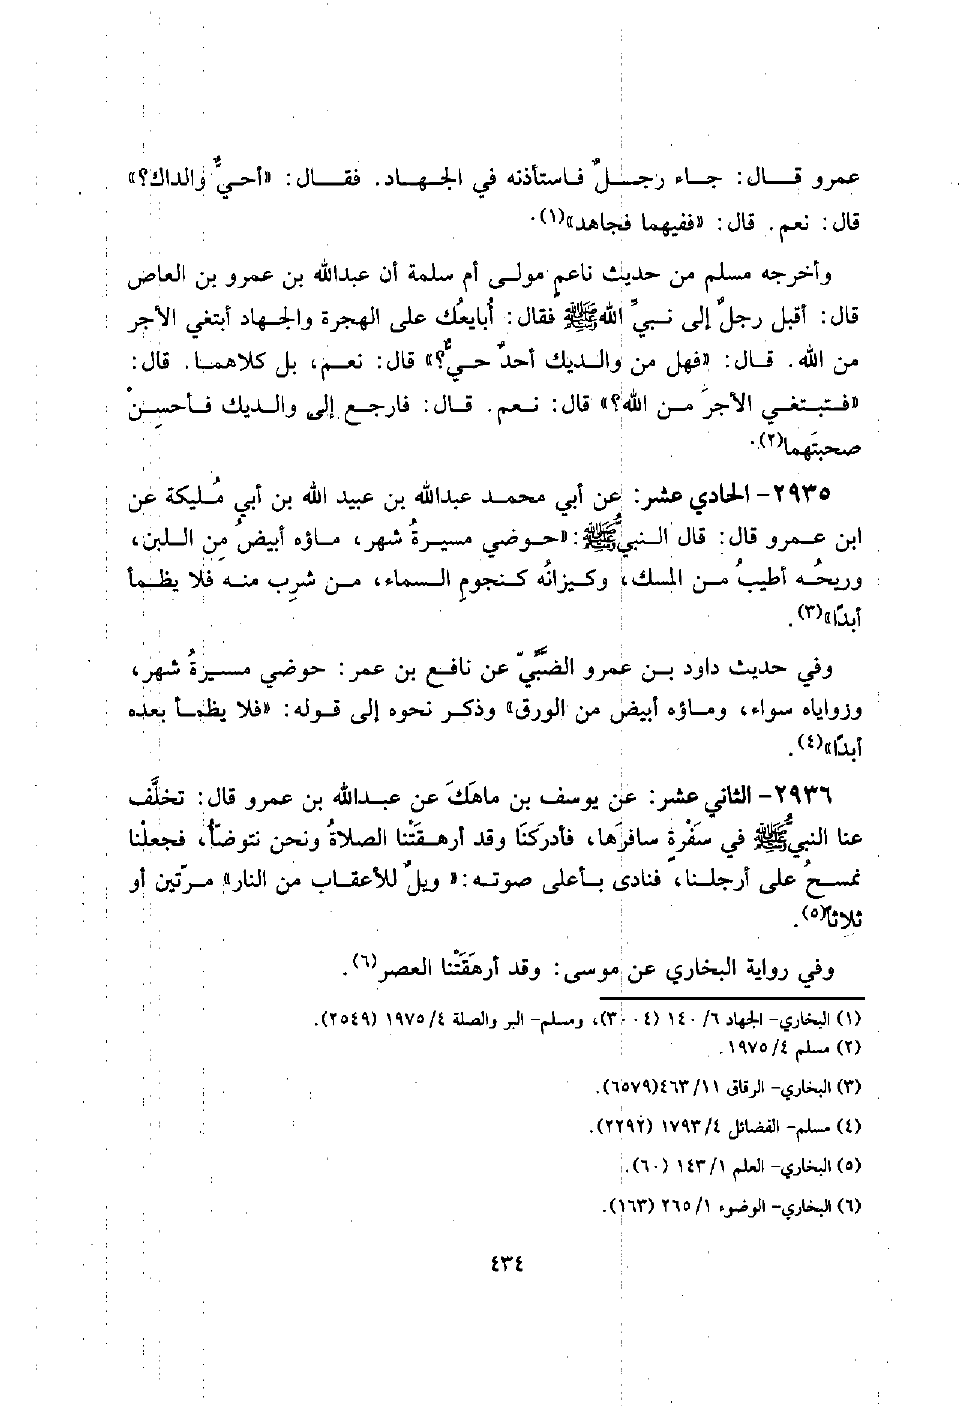 عمرو قــال: جــاء رجــلٌ فـاستأذنه في الجـهــاد. فقــال: «أحيٌّ والداك؟»
قال: نعم. قال: «ففيهما فجاهد»(١).
وأخرجه مسلم من حديث ناعمٍ مولـى أم سلمة أن عبدالله بن عمرو بن العاص
قال: أقبل رجلٌ إلى نـبيِّ اللهﷺ فقال: أُبايعُك على الهجرة والجـهاد أبتغي الأجر
من الله. قـال: «فهل من والـديك أحدٌ حـيٌّ؟» قال: نعـم، بل كلاهمـا. قال:
«فـتبـتغـي الأجرَ مـن الله؟» قال: نـعم. قـال: فارجع إلى والـديك فـأحسِنْ
صحبتَهما(٢).
٢٩٣٥- الحادي عشر: عن أبي محمـد عبدالله بن عبيد الله بن أبي مُـليكة عن
ابن عـمرو قال: قال الـنبيُّﷺ: «حـوضي مسيـرةُ شهر، مـاؤه أبيضُ مِن الـلبن،
وريحُـه أطيبُ مـن المسك، وكـيزانُه كـنجومِ السماء، مـن شرِب منـه فلا يظـمأ
أبدًا»(٣).
وفي حديث داود بـن عمرو الضَّبِّيّ عن نافع بن عمر: حوضي مسـيرةُ شهر،
وزواياه سواء، ومـاؤه أبيض من الورق» وذكـر نحوه إلى قـوله: «فلا يظمـأ بعده
أبدًا»(٤).
٢٩٣٦- الثاني عشر: عن يوسف بن ماهَكَ عن عبـدالله بن عمرو قال: تخلَّف
عنا النبيُّﷺ في سَفْرةٍ سافرَها، فأدركَنَا وقد أرهـقَتْنا الصلاةُ ونحن نتوضّأُ، فجعلْنا
نمسـحُ على أرجلـنا، فنادى بـأعلى صوتـه: « ويلٌ للأعقـاب من النار» مـرّتين أو
ثلاثاً(٥).
وفي رواية البخاري عن موسى: وقد أرهَقَتْنا العصر(٦).
(١) البخاري- الجهاد ٦/ ١٤٠ (٣٠٠٤)، ومسلم- البر والصلة ٤/ ١٩٧٥ (٢٥٤٩).
(٢) مسلم ٤/ ١٩٧٥.
(٣) البخاري- الرقاق ١١/ ٤٦٣(٦٥٧٩).
(٤) مسلم- الفضائل ٤/ ١٧٩٣ (٢٢٩٢).
(٥) البخاري- العلم ١/ ١٤٣ (٦٠).
(٦) البخاري- الوضوء ١/ ٢٦٥ (١٦٣).
٤٣٤